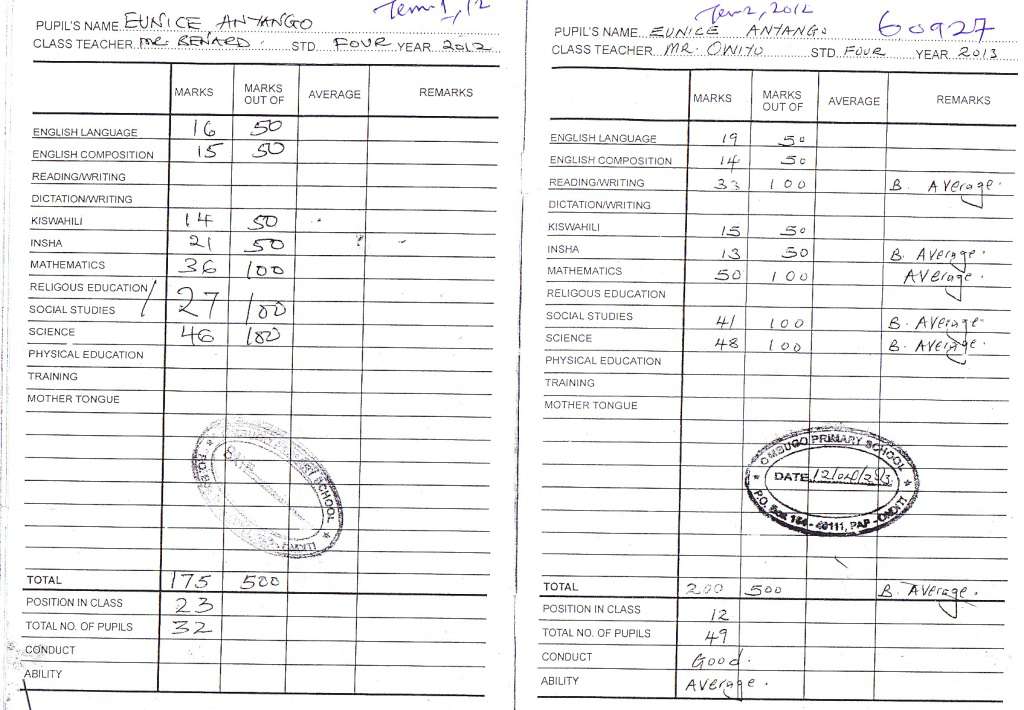 Term 1, 12
PUPIL'S NAME EUNICE ANYANGO
CLASS TEACHER MR. RENARD. STD. FOUR YEAR 2012
MARKS MARKS OUT OF AVERAGE REMARKS
ENGLISH LANGUAGE 16 50
ENGLISH COMPOSITION 15 50
READING/WRITING
DICTATION/WRITING
KISWAHILI 14 50
INSHA 21 50
MATHEMATICS 36 100
RELIGIOUS EDUCATION
SOCIAL STUDIES 27 100
SCIENCE 46 100
PHYSICAL EDUCATION
TRAINING
MOTHER TONGUE
SCHOOL
TOTAL 175 500
POSITION IN CLASS 23
TOTAL NO. OF PUPILS 32
CONDUCT
ABILITY
Term 2, 2012
60927
PUPIL'S NAME EUNICE ANYANGO
CLASS TEACHER MR. OWITO STD. FOUR YEAR 2013
MARKS MARKS OUT OF AVERAGE REMARKS
ENGLISH LANGUAGE 19 50
ENGLISH COMPOSITION 14 50
READING/WRITING 33 100 B. Average.
DICTATION/WRITING
KISWAHILI 15 50
INSHA 13 50 B. Average.
MATHEMATICS 50 100 Average.
RELIGOUS EDUCATION
SOCIAL STUDIES 41 100 B. Average.
SCIENCE 48 100 B. Average.
PHYSICAL EDUCATION
TRAINING
MOTHER TONGUE
OMBUGO PRIMARY SCHOOL
DATE
P.O. Box 164 - 40111, PAP - ONDITI
TOTAL 200 500 B. Average.
POSITION IN CLASS 12
TOTAL NO. OF PUPILS 49
CONDUCT Good.
ABILITY Average.